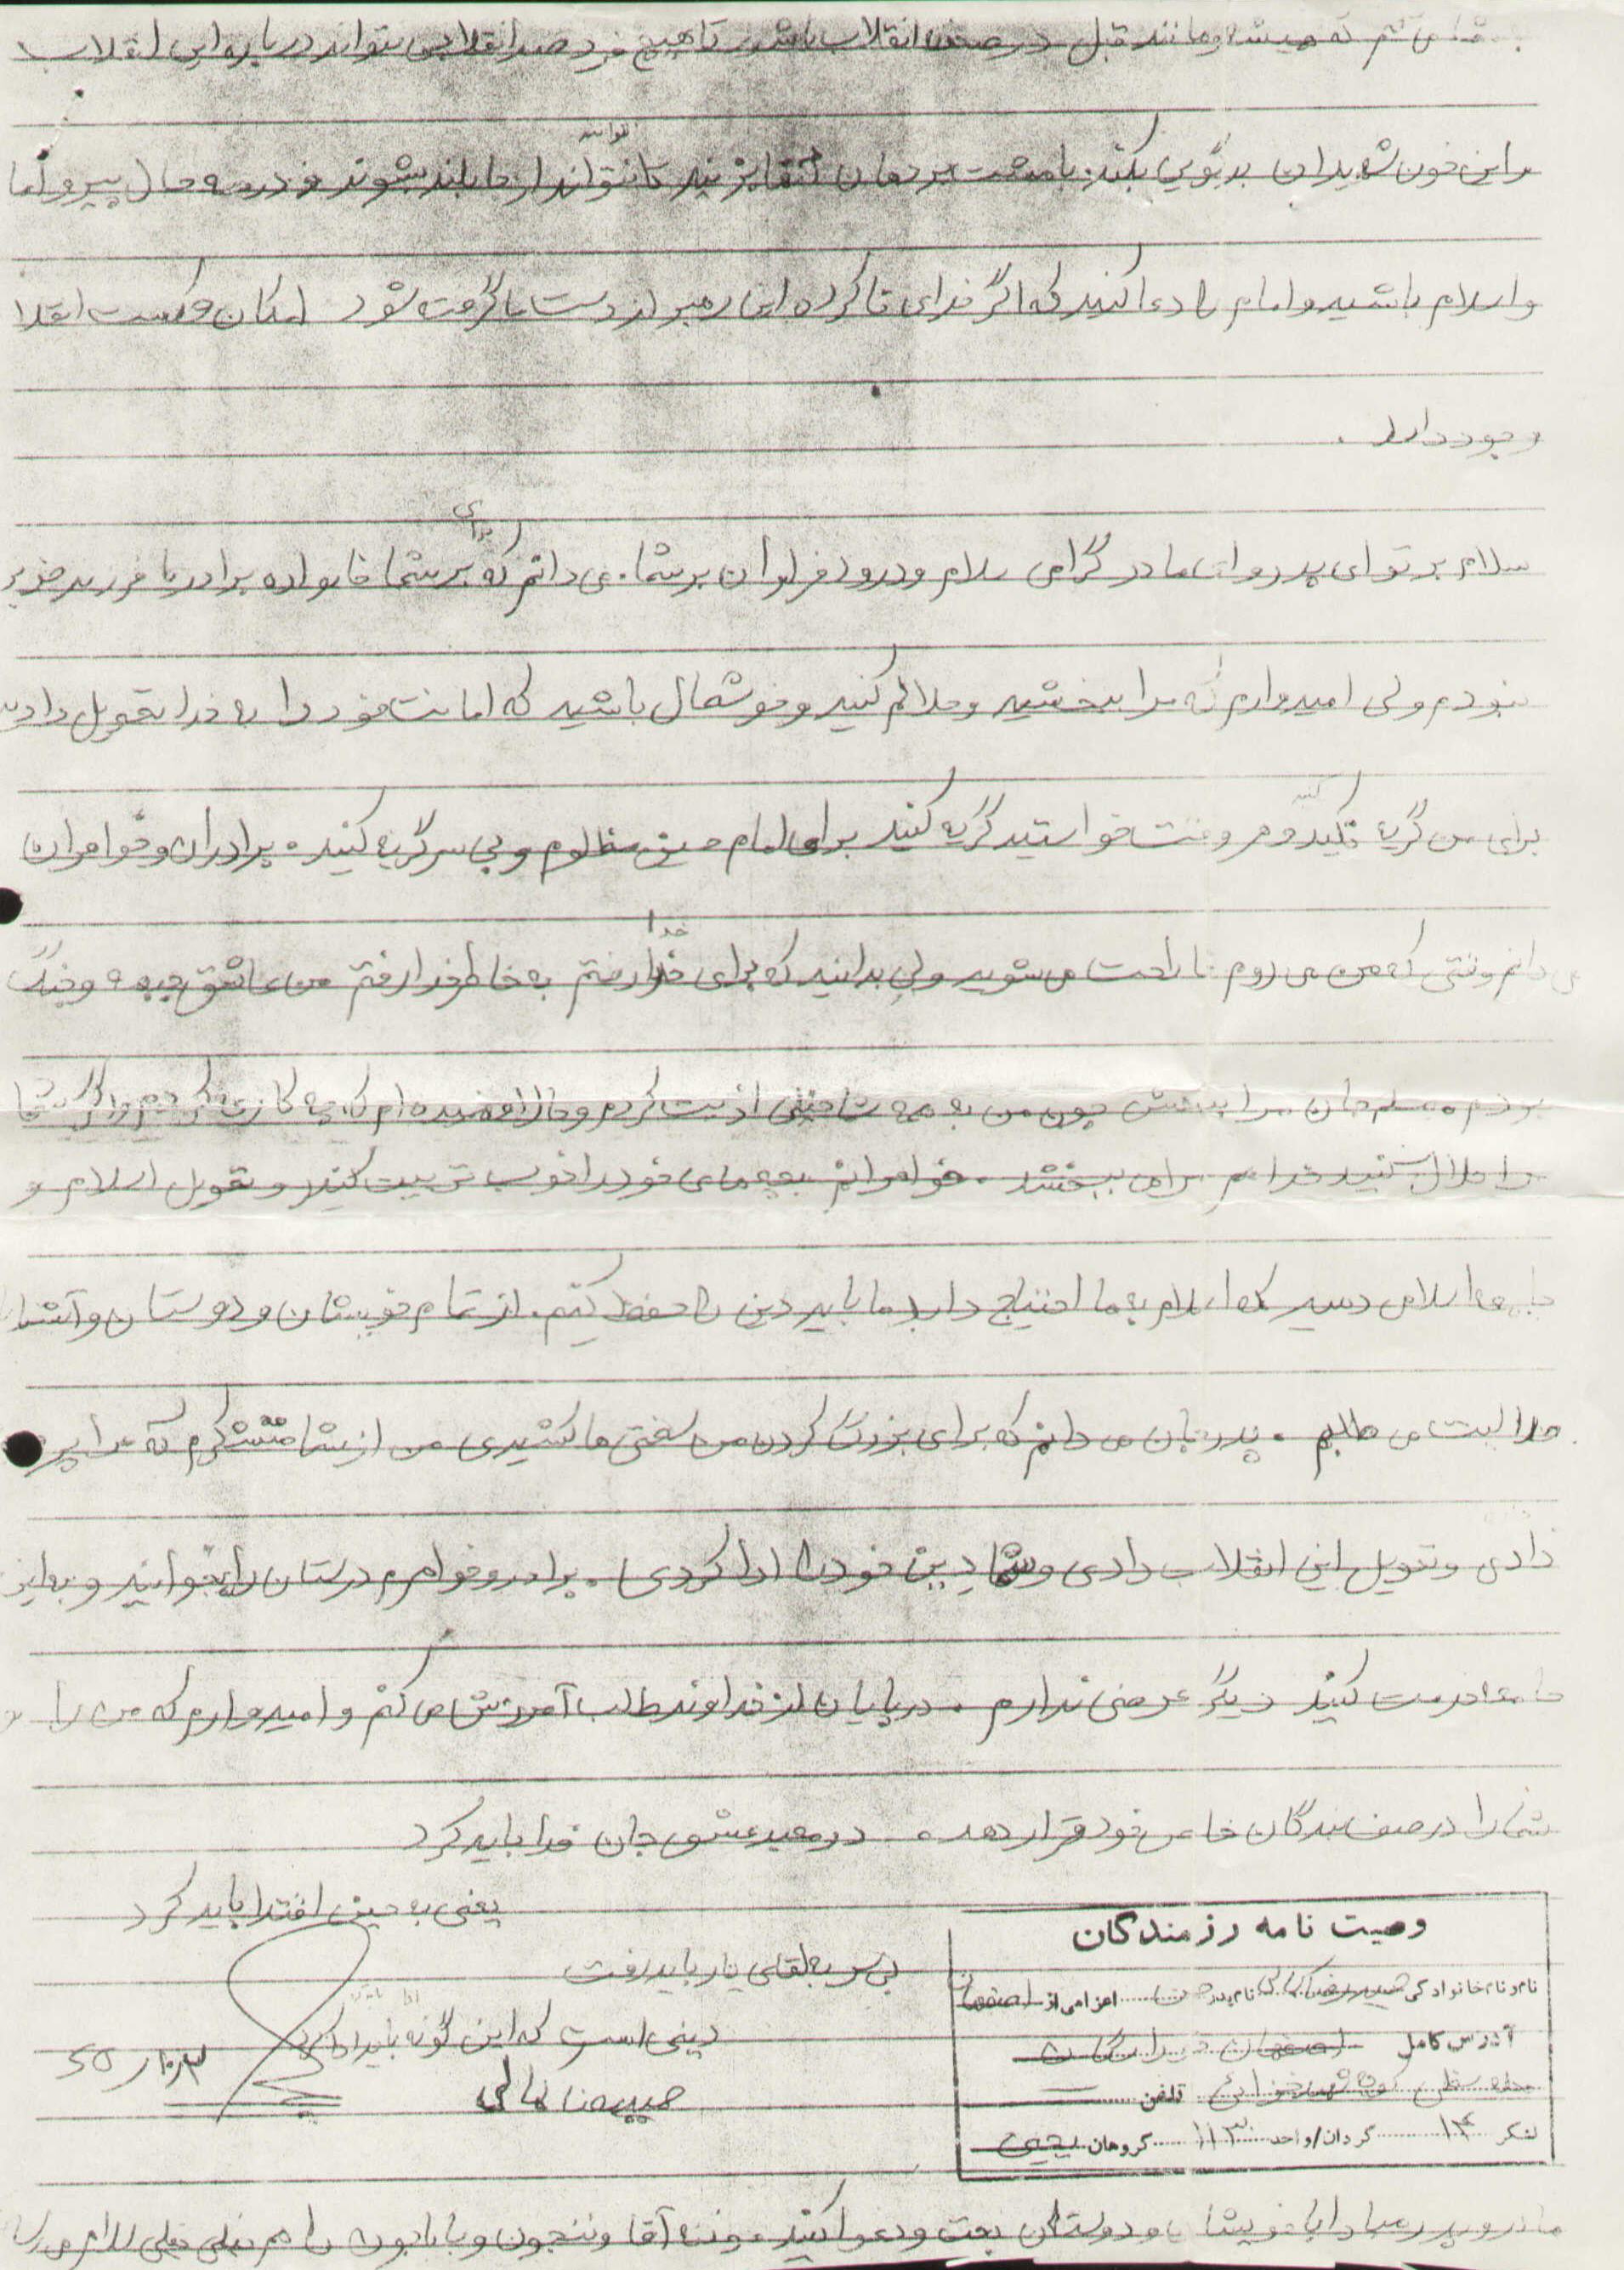 که همیشه و مانند قبل در صحنه انقلاب باشید تا هیچ فرد ضد انقلابی نتواند درباره این انقلاب
و این خون شهیدان بدگویی بکند. با مشت بر دهان آنها بزنید تا نتوانند از جا بلند شوند و در همه حال پیرو امام
و اسلام باشید و امام را دعا کنید که اگر خدای ناکرده این رهبر از دست ما گرفته شود امکان شکست انقلا
وجود دارد.
سلام بر تو ای پدر و ای مادر گرامی سلام و درود فراوان بر شما. می دانم که برای شما خانواده برادر یا فرزند خوبی
نبودم ولی امیدوارم که مرا ببخشید و حلالم کنید و خوشحال باشید که امانت خود را به خدا تحویل دادید
برای من گریه نکنید و هر وقت خواستید گریه کنید برای امام حسین مظلوم و بی سر گریه کنید. برادران و خواهران
می دانم وقتی که من می روم ناراحت می شوید ولی بدانید که برای خدا رفتم به خاطر خدا رفتم من عاشق جبهه و جنگ
بودم. جان مرا ببخش چون من به همه اذیت کردم و حالا فهمیده ام که چه کار کردم و اگر شما
را حلال کنید خدا هم مرا می ببخشد. خواهرانم بچه های خود را خوب تربیت کنید و تحویل اسلام و
جامعه اسلامی دهید که اسلام به ما احتیاج دارد ما باید دین را حفظ کنیم. از تمام خویشان و دوستان و آشنا
حلالیت می طلبم. پدر جان می دانم که برای بزرگ کردن من سختی ها کشیدی من از شما متشکرم که مرا پرورش
دادی و تحویل این انقلاب دادی و شما دین خود را ادا کردی. برادر و خواهرم درستان را بخوانید و به این
جامعه خدمت کنید دیگر عرضی ندارم. در پایان از خداوند طلب آمرزش می کنم و امیدوارم که من را و
شما را در صف بندگان خاص خود قرار دهد. در معبد عشق جان فدا باید کرد
یعنی به حسین اقتدا باید کرد
بی سر به لقای یار باید رفت
دینی است که این گونه باید ادا کرد
حمیدرضا کمالی
وصیت نامه رزمندگان
نام و نام خانوادگی حمیدرضا کمالی نام پدر حسن اعزامی از اصفهان
آدرس کامل اصفهان
محله کوچه شهید تلفن
لشکر ۱۴ گردان/واحد گروهان یحیی
مادر و پدر مبادا با خویشان و دوستان بحث و دعوا کنید. و ننه آقا و ننجون و باباجون را هم خیلی خیلی سلام می رسانم